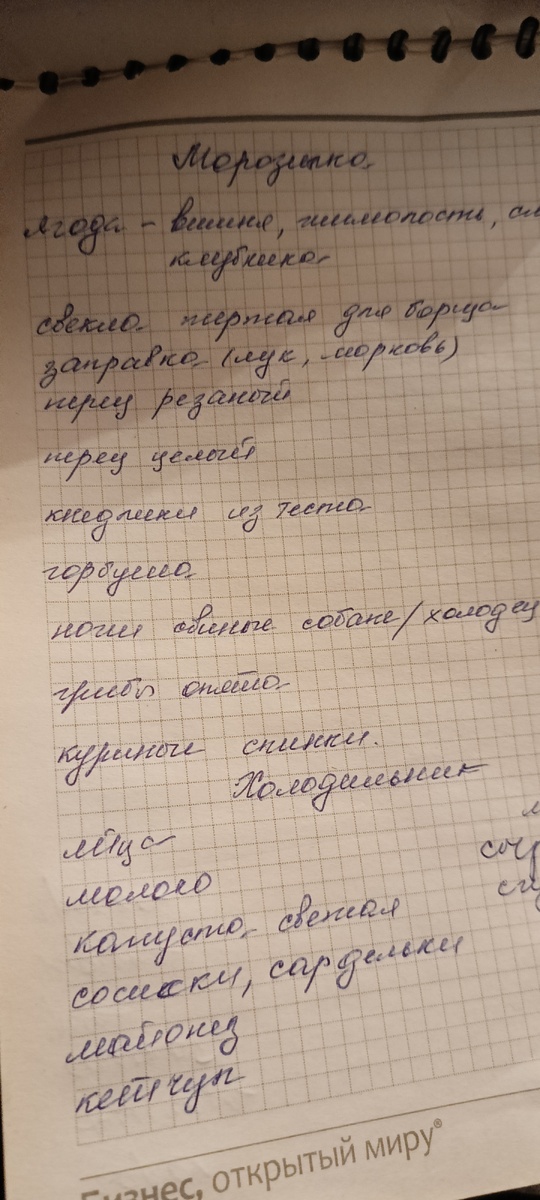 Морозилка
ягода - вишня, жимолость, сл
клубника
свекла тертая для борща
заправка (лук, морковь)
перец резаный
перец целый
кнедлики из теста
горбуша
ноги свиные собаке/холодец
грибы опята
куриные спинки.
Холодильник
яйца
молоко
капуста свежая
сосиски, сардельки
майонез
кетчуп
Бизнес, открытый миру®